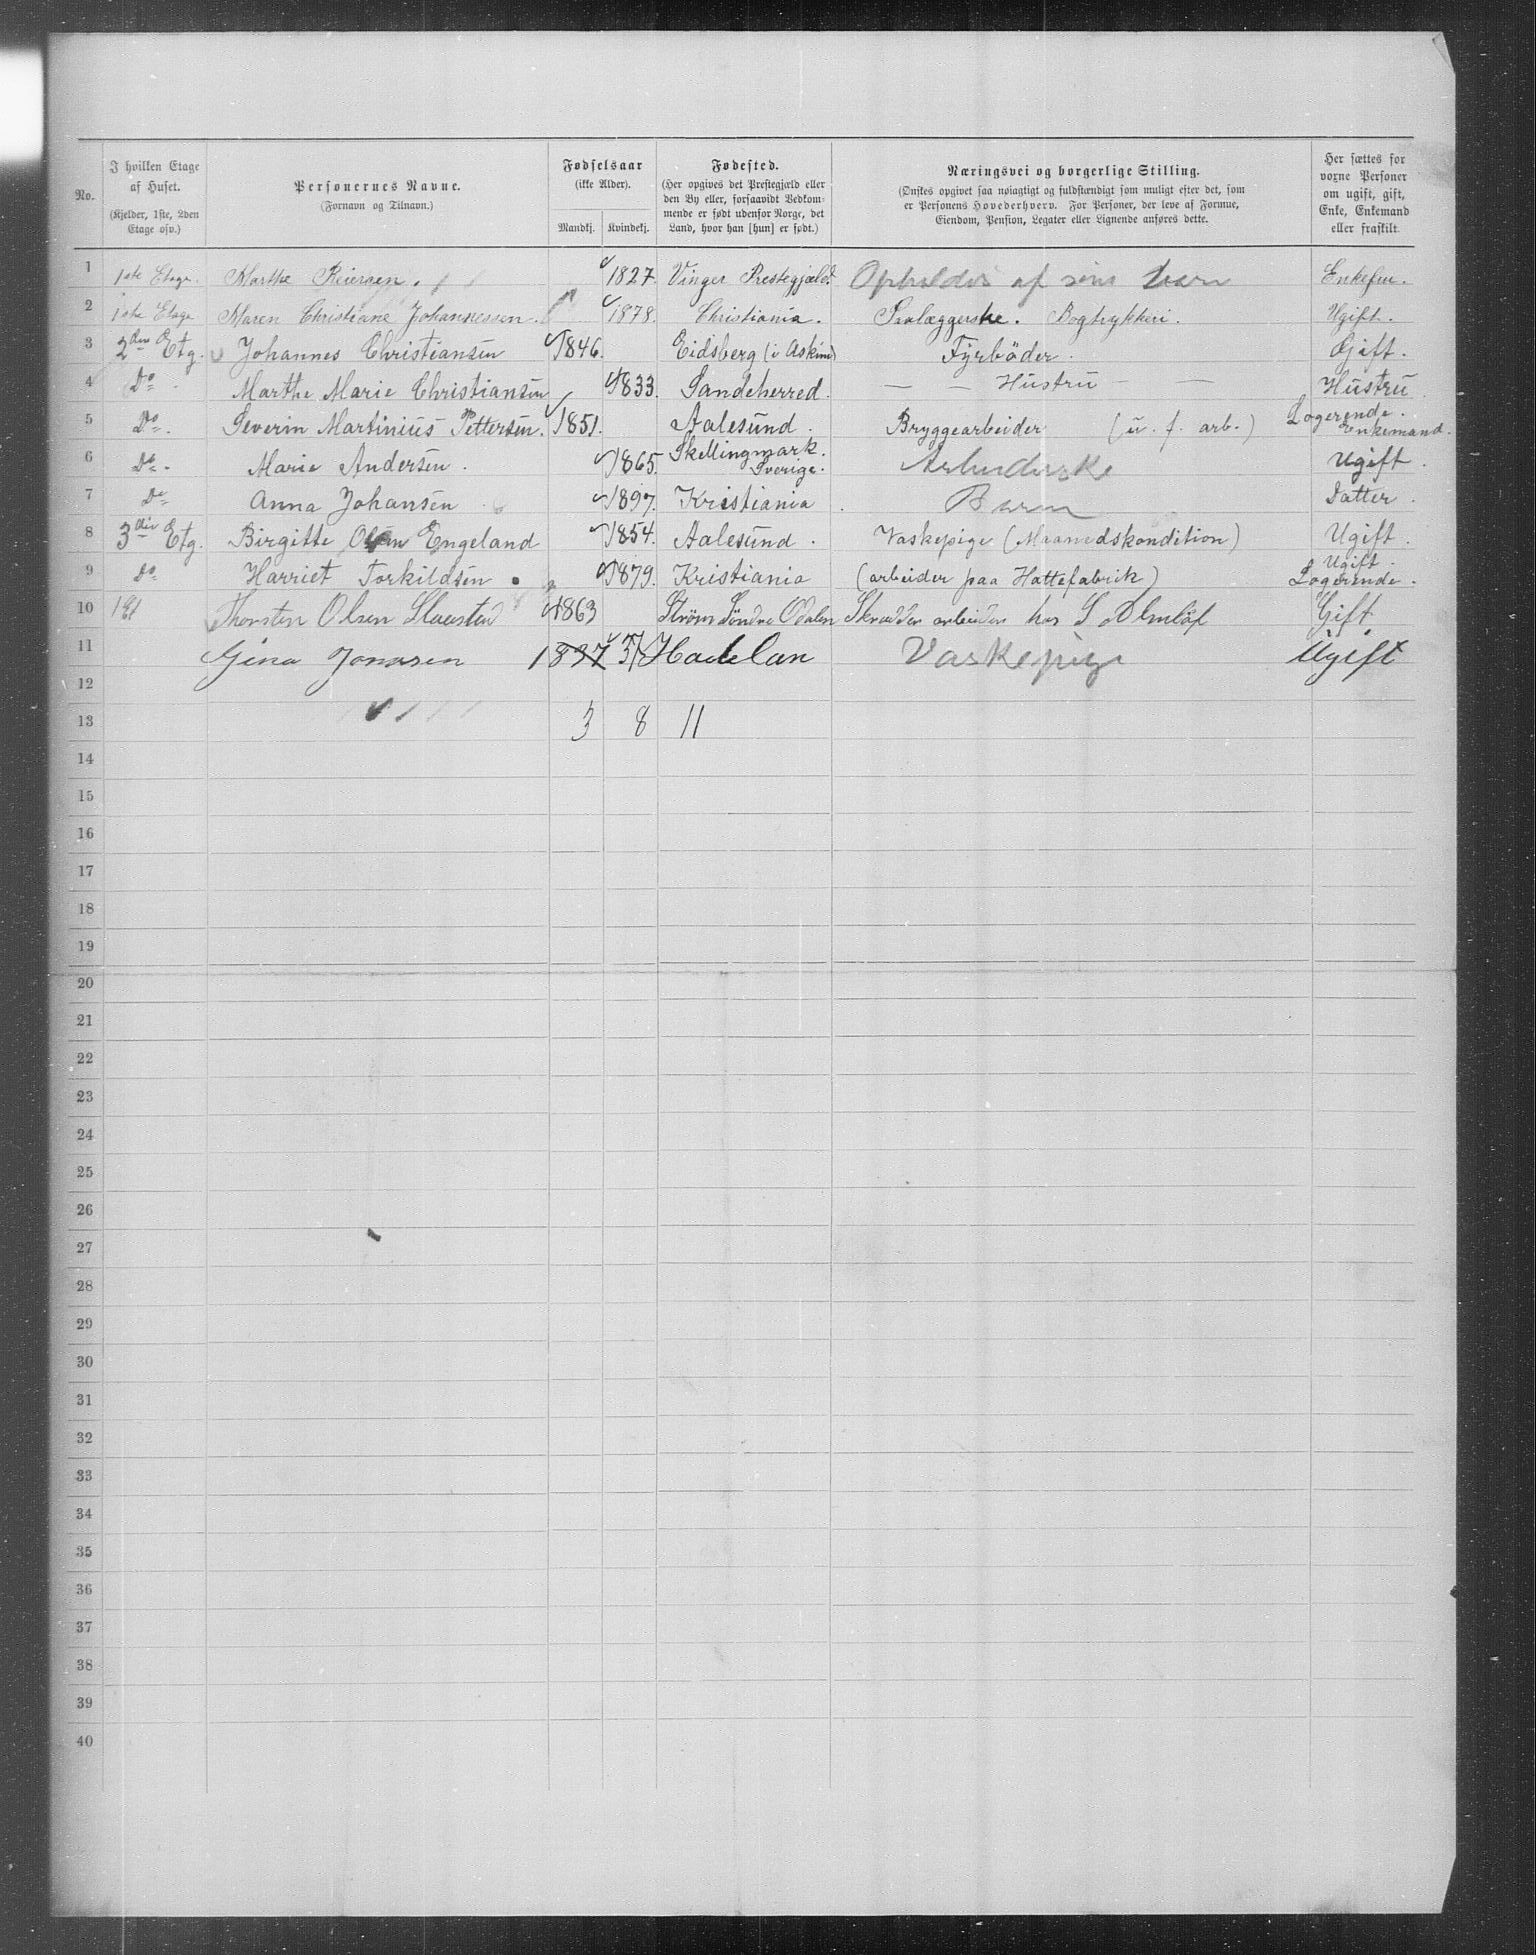 No.
I hvilken Etage af Huset.
(Kjelder, 1ste, 2den Etage osv.)
Personernes Navne.
(Fornavn og Tilnavn.)
Fødselsaar
(ikke Alder).
Mandkj. Kvindekj.
Fødested.
(Her opgives det Prestegjæld eller den By eller, forsaavidt Vedkommende er født udenfor Norge, det Land, hvor han [hun] er født.)
Næringsvei og borgerlige Stilling.
(Ønskes opgivet saa nøiagtigt og fuldstændigt som muligt efter det, som er Personens Hovederhverv. For Personer, der leve af Formue, Eiendom, Pension, Legater eller Lignende anføres dette.
Her sættes for voxne Personer om ugift, gift, Enke, Enkemand eller fraskilt
1 1ste Etage. Marthe Reiersen. 1827. Vinger Prestegjæld. Opholdes af sine barn Enkefru.
2 1ste Etage Maren Christiane Johannessen. 1878. Christiania. Paalæggerske. Bogtrykkeri. Ugift.
3 2den Etg. Johannes Christiansen 1846. Eidsberg (i Askim) Fyrbøder. Gift.
4 Do Marthe Marie Christiansen 1833. Sandeherred. — — Hustru — — Hustru
5 Do. Severin Martinius Pettersen. 1851. Aalesund. Bryggearbeider (u. f. arb.) Logerende. Enkemand.
6 Do. Marie Andersen. 1865. Skellingmark. Sverige. Arbeiderske Ugift.
7 Do Anna Johansen 1897. Kristiania. Barn Datter.
8 3die Etg. Birgitte Olsen Engeland 1854. Aalesund. Vaskepige (Maanedskondition) Ugift.
9 Do Harriet Torkildsen 1879. Kristiania (arbeider paa Hattefabrik) Ugift. Logerende.
10 1st Thorsten Olsen 1863 Strøm Søndre Odalen Skrædder arbeider hos S. Almløf Gift
11 Gina Jonasen 1837 57 Hadelan Vaskepige Ugift
12
13 3 8 11
14
15
16
17
18
19
20
21
22
23
24
25
26
27
28
29
30
31
32
33
34
35
36
37
38
39
40